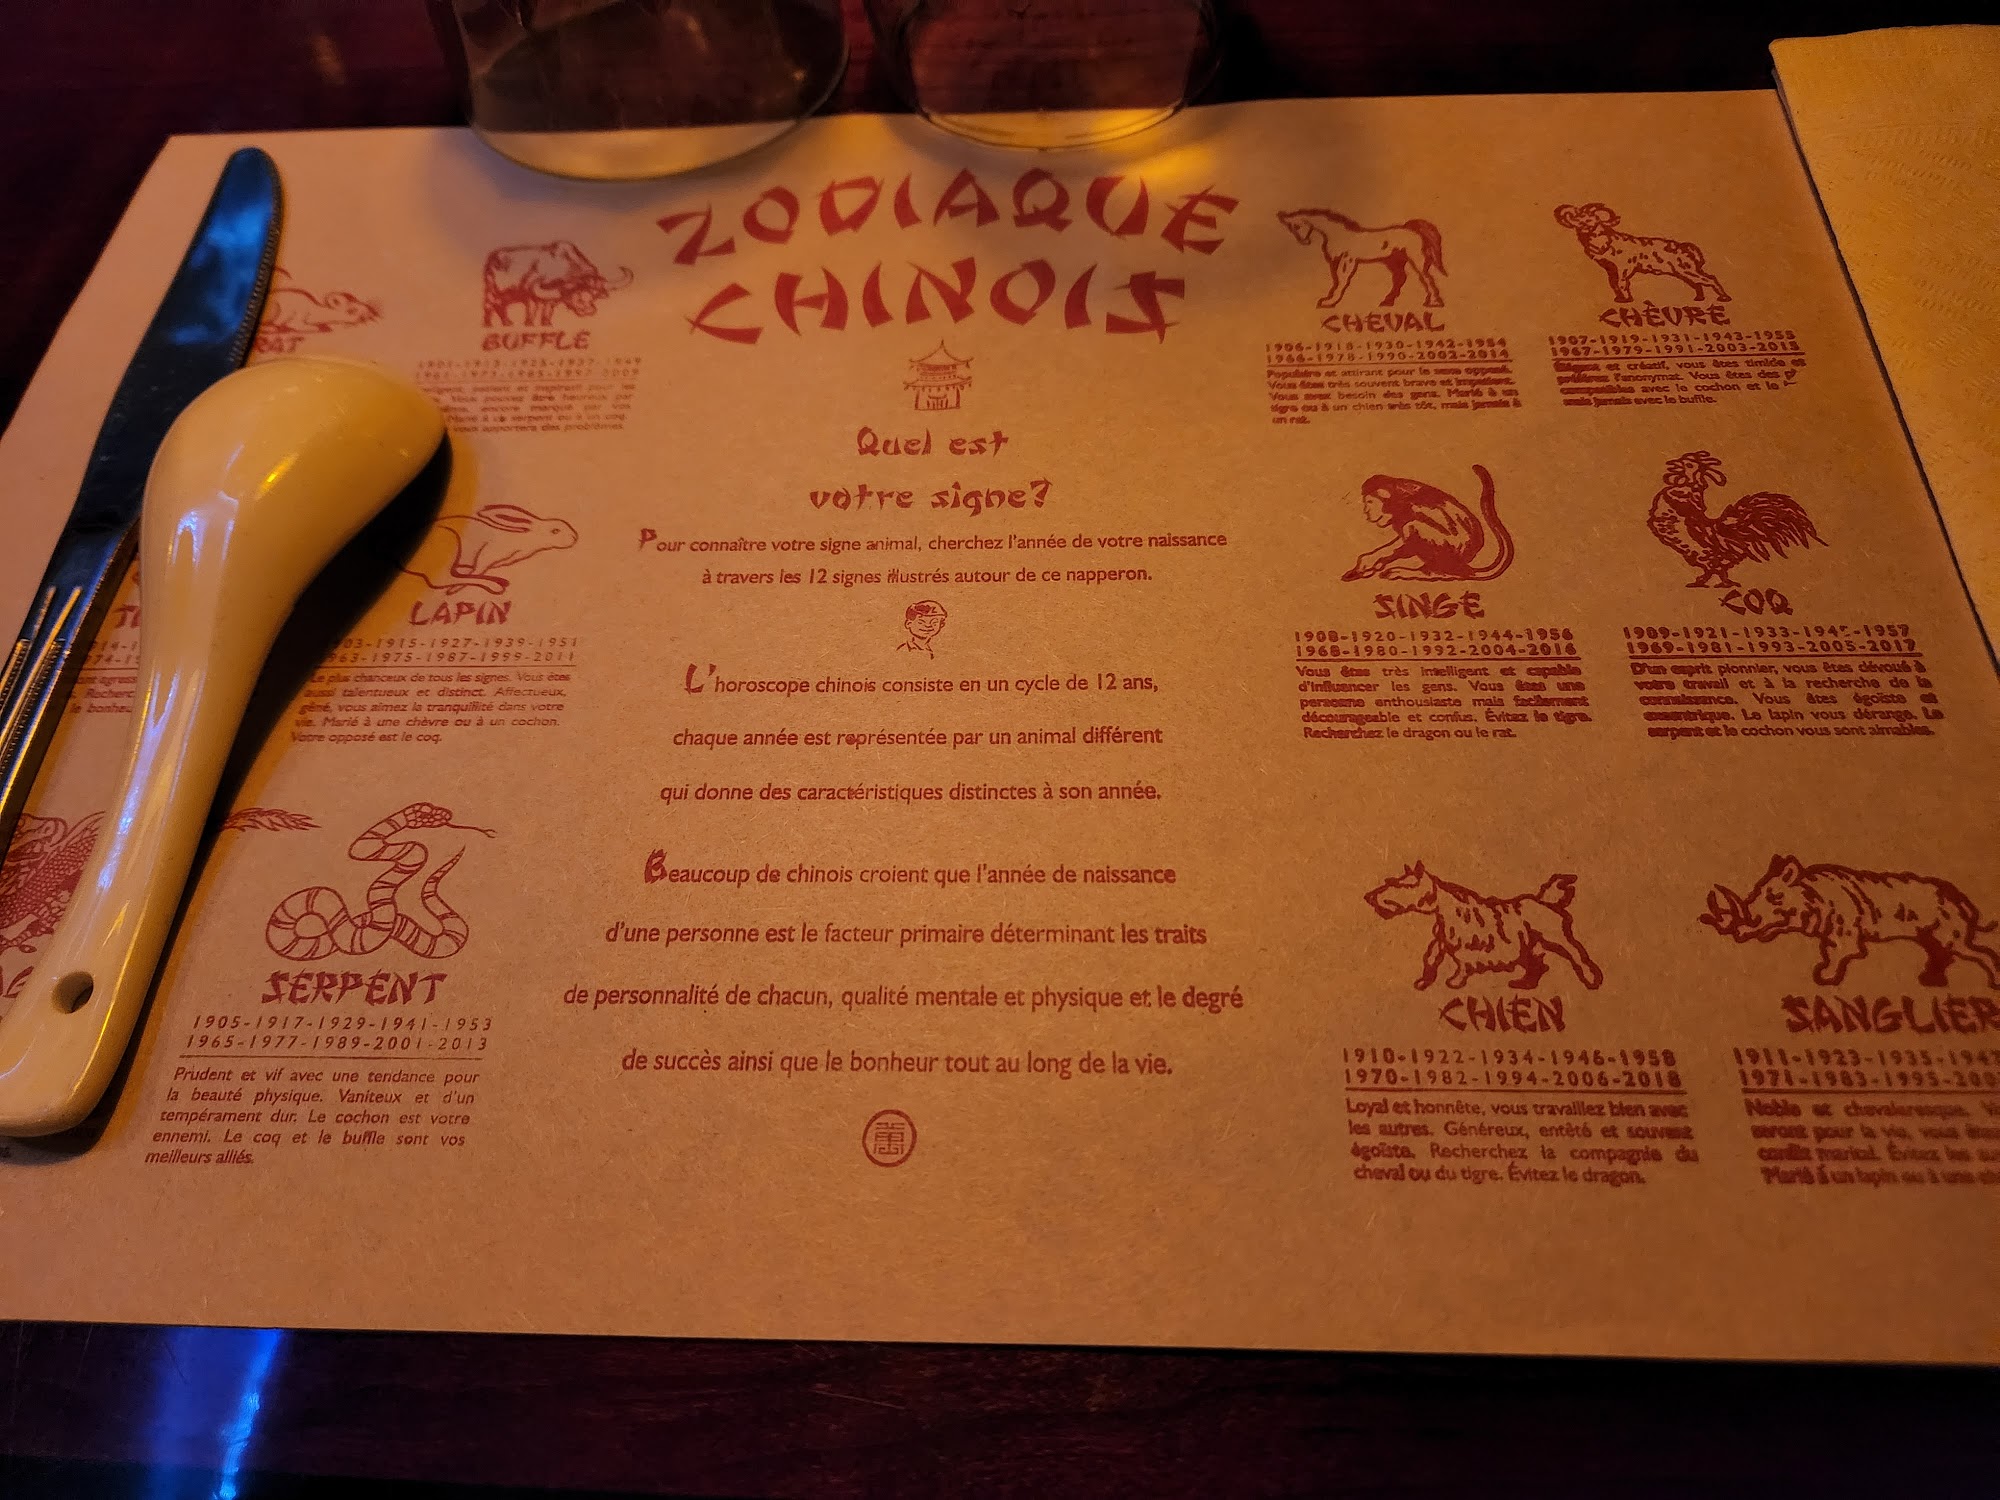 ZODIAQUE
CHINOIS
Quel est
votre signe?
Pour connaître votre signe animal, cherchez l'année de votre naissance
à travers les 12 signes illustrés autour de ce napperon.
L'horoscope chinois consiste en un cycle de 12 ans,
chaque année est représentée par un animal différent
qui donne des caractéristiques distinctes à son année.
Beaucoup de chinois croient que l'année de naissance
d'une personne est le facteur primaire déterminant les traits
de personnalité de chacun, qualité mentale et physique et le degré
de succès ainsi que le bonheur tout au long de la vie.
RAT
BUFFLE
1901-1913-1925-1937-1949
1961-1973-1985-1997-2009
patient et inspirant pour les
Vous pouvez être heureux par
encore marqué par vos
Marié à un serpent ou à un coq.
vous apportera des problèmes.
LAPIN
03-1915-1927-1939-1951
963-1975-1987-1999-2011
Le plus chanceux de tous les signes. Vous êtes
aussi talentueux et distinct. Affectueux,
gêné, vous aimez la tranquilité dans votre
vie. Marié à une chèvre ou à un cochon.
Votre opposé est le coq.
SERPENT
1905-1917-1929-1941-1953
1965-1977-1989-2001-2013
Prudent et vif avec une tendance pour
la beauté physique. Vaniteux et d'un
tempérament dur. Le cochon est votre
ennemi. Le coq et le buffle sont vos
meilleurs alliés.
CHEVAL
1906-1918-1930-1942-1954
1966-1978-1990-2002-2014
Populaire et attirant pour le sexe opposé.
Vous êtes très souvent brave et impatient.
Vous avez besoin des gens. Marié à un
tigre ou à un chien très tôt, mais jamais à
un rat.
CHÈVRE
1907-1919-1931-1943-1955
1967-1979-1991-2003-2015
Élégant et créatif, vous êtes timide et
préférez l'anonymat. Vous êtes des plus
compatibles avec le cochon et le
mais jamais avec le buffle.
SINGE
1908-1920-1932-1944-1956
1968-1980-1992-2004-2016
Vous êtes très intelligent et capable
d'influencer les gens. Vous êtes une
personne enthousiaste mais facilement
décourageable et confus. Évitez le tigre.
Recherchez le dragon ou le rat.
COQ
1909-1921-1933-1945-1957
1969-1981-1993-2005-2017
D'un esprit pionnier, vous êtes dévoué à
votre travail et à la recherche de la
connaissance. Vous êtes égoïste et
excentrique. Le lapin vous dérange. Le
serpent et le cochon vous sont aimables.
CHIEN
1910-1922-1934-1946-1958
1970-1982-1994-2006-2018
Loyal et honnête, vous travaillez bien avec
les autres. Généreux, entêté et souvent
égoïste. Recherchez la compagnie du
cheval ou du tigre. Évitez le dragon.
SANGLIER
1911-1923-1935-1947
1971-1983-1995-200
Noble et chevaleresque.
seront pour la vie, vous
conflit marital. Évitez les
Marié à un lapin ou à une